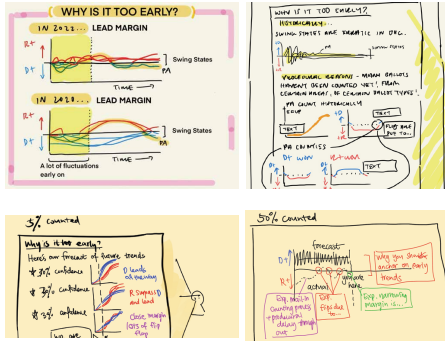 WHY IS IT TOO EARLY?
IN 2022... LEAD MARGIN
R+
D+
Swing States
PA
TIME
IN 2020... LEAD MARGIN
R+
D+
Swing States
PA
TIME
A lot of fluctuations
early on
WHY IS IT TOO EARLY?
HISTORICALLY...
SWING STATES ARE ERRATIC IN
PROCEDURAL REASONS - MANY BALLOTS
HAVEN'T BEEN COUNTED YET! FROM
CERTAIN AREAS, OF CERTAIN BALLOT TYPES!
PA COUNT HISTORICALLY
TEXT
TEXT
DUE TO...
PA COUNTIES
D+ won
R+ won
TEXT
5% counted
Why is it too early?
Here's our forecast of future trends
confidence
D leads
confidence
R surpass D
and lead
confidence
Close margin
lots of flip
flop
we are
50% counted
forecast
D+
R+
actual
we are
here
Why you shouldn't
anchor on early
trends
Exp. mail-in
counting process
+ procedural
delay through
out
Exp. flips
due to...
Exp. narrowing
margin is...